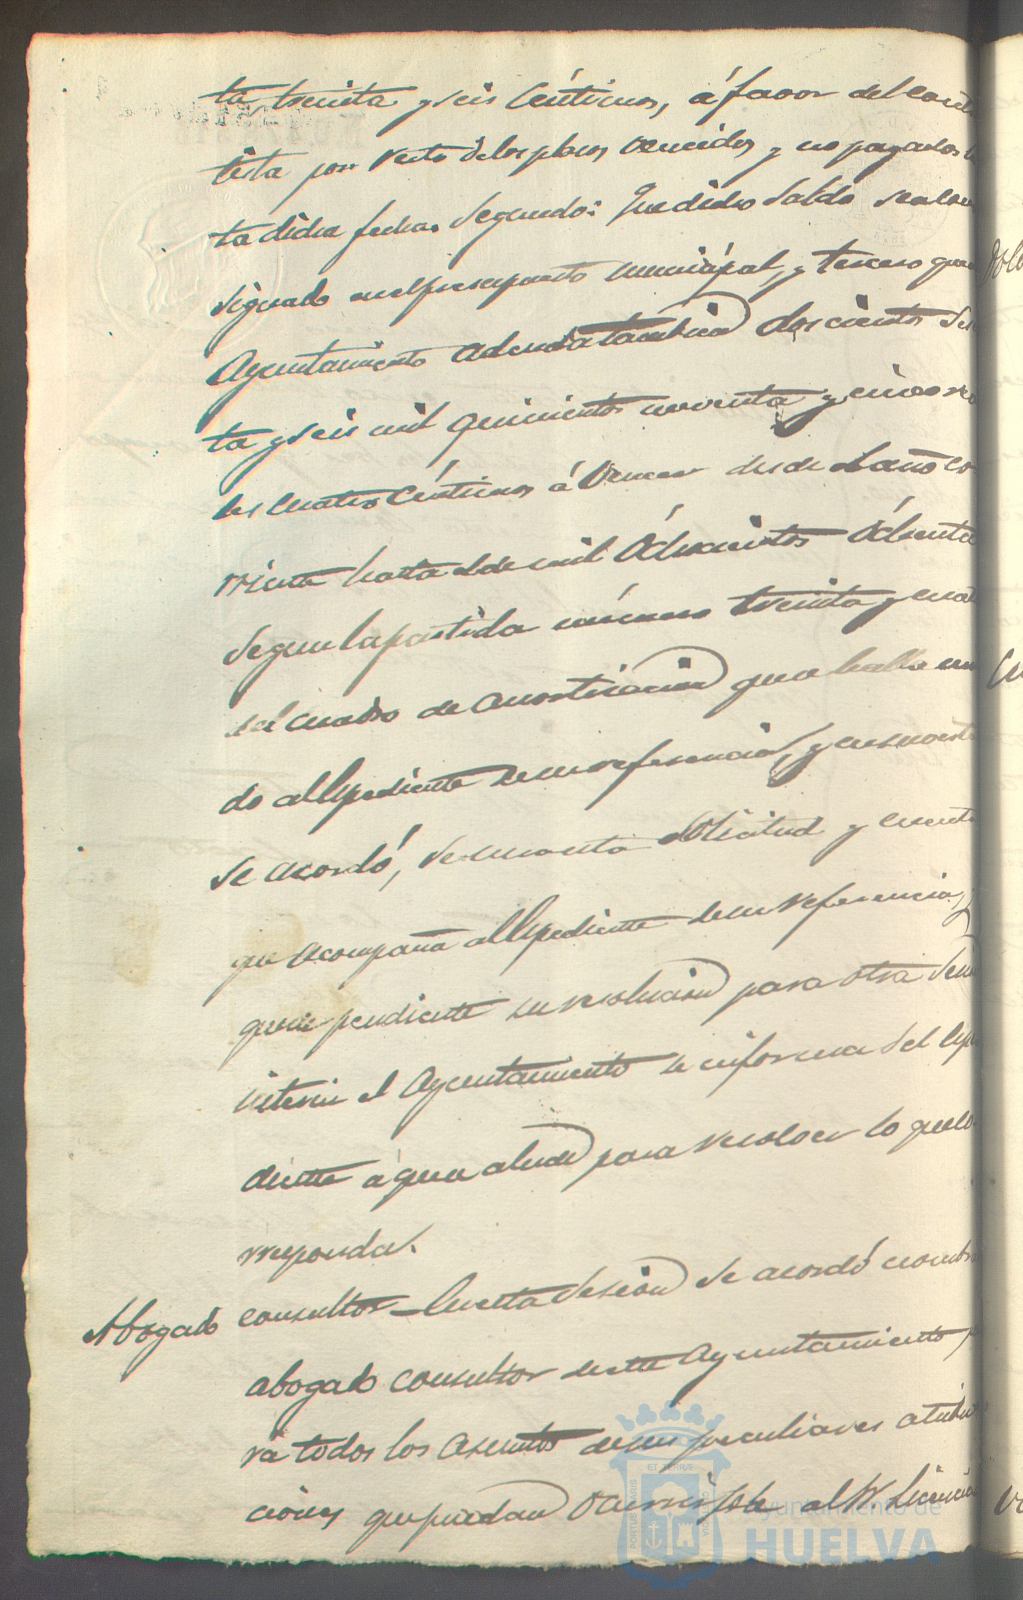 ta, treinta y seis céntimos, á favor del contra
tista por resto de los plazos vencidos y no pagados
ta dicha fecha. Segundo: Que dicho saldo sea con
signado en el presupuesto municipal, y tercero que
Ayuntamiento adeuda tambien doscientos
ta y seis mil quinientos noventa y cinco rea
les cuatro céntimos á vencer desde el año co
rriente hasta el de mil ochocientos ochenta
segun la partida número treinta y cuatro
del cuadro de amortizacion que se halla uni
do al espediente de su referencia, y en su vista
se acordó, se una esta solicitud y cuenta
que acompaña al espediente de su referencia, y
quede pendiente su resolucion para otra
interin el Ayuntamiento se informa del espe
diente á que alude para resolver lo que co
rresponda.
Abogado consultor - En esta sesion se acordó nombrar
abogado consultor de este Ayuntamiento pa
ra todos los asuntos de sus peculiares atribu
ciones que puedan ocurrirsele al Sr. Licencia
Ayuntamiento de
HUELVA